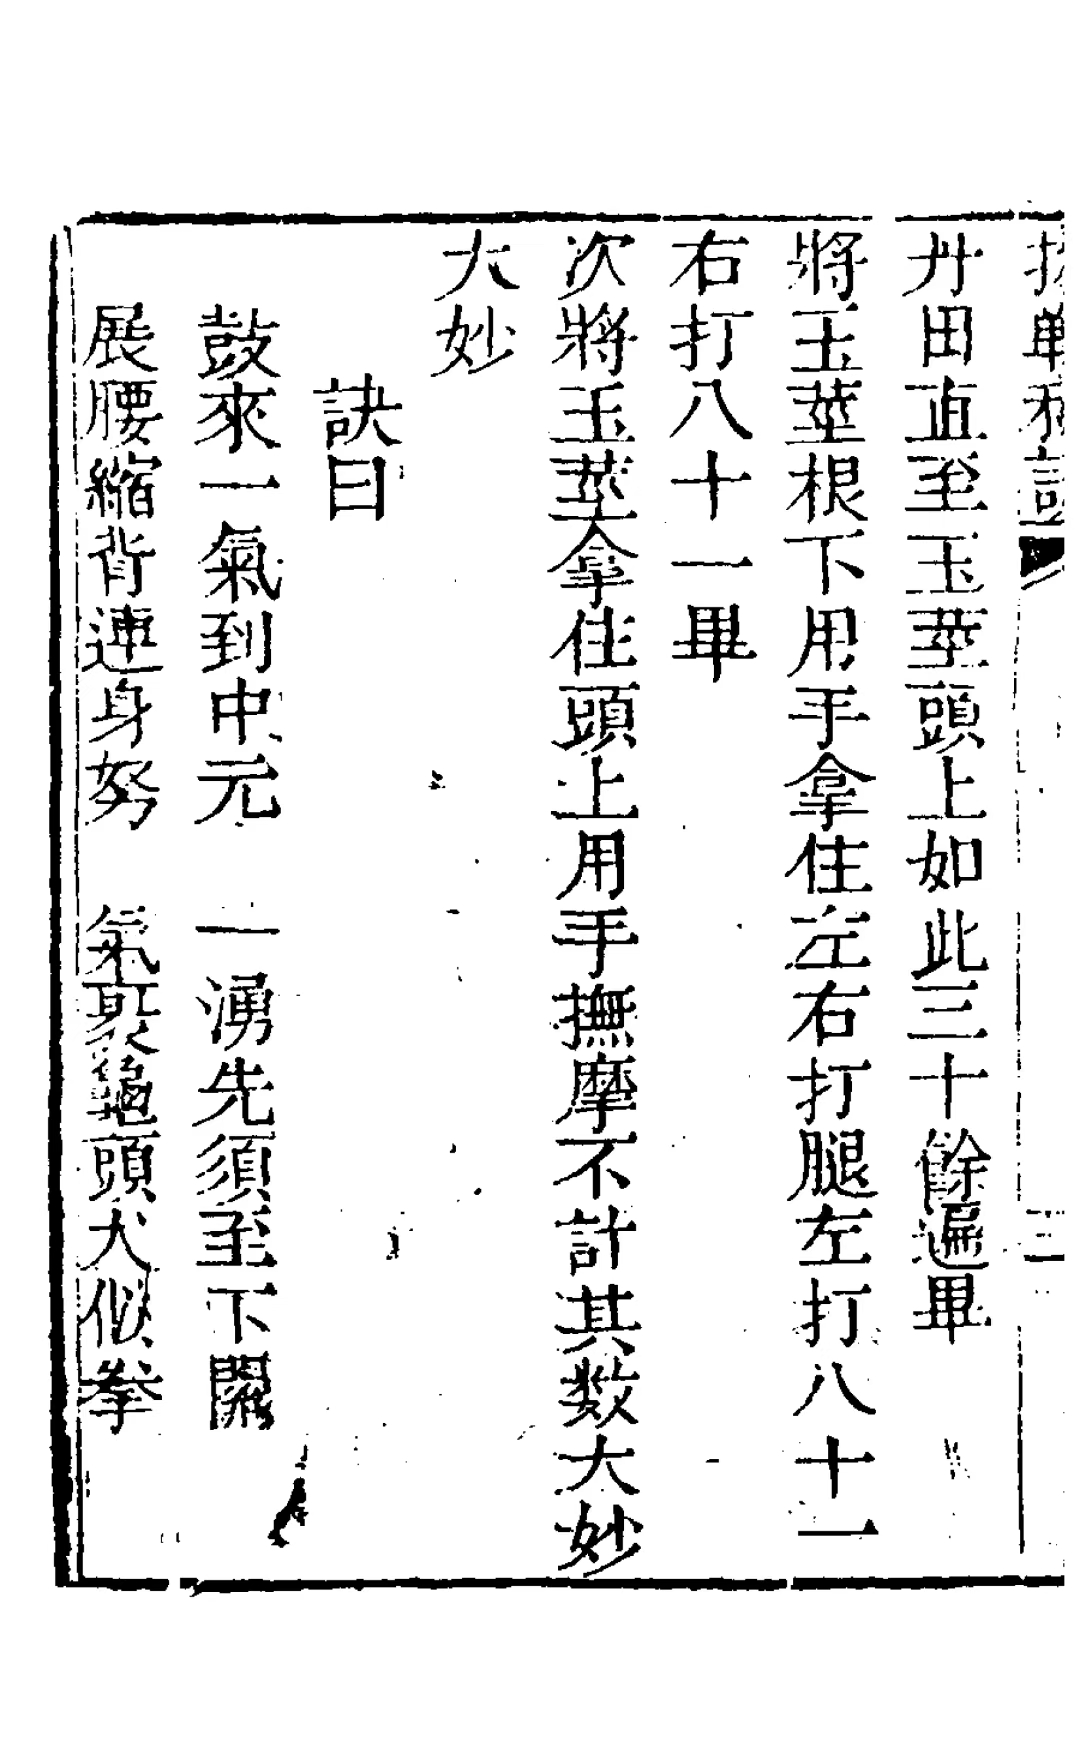 丹田直至玉莖頭上如此三十餘遍畢
將玉莖根下用手拿住左右打腿左打八十一
右打八十一畢
次將玉莖拿住頭上用手撫摩不計其数大妙
大妙
訣曰
鼓來一氣到中元　一湧先須至下關
展腰縮背連身努　氣聚龜頭大似拳